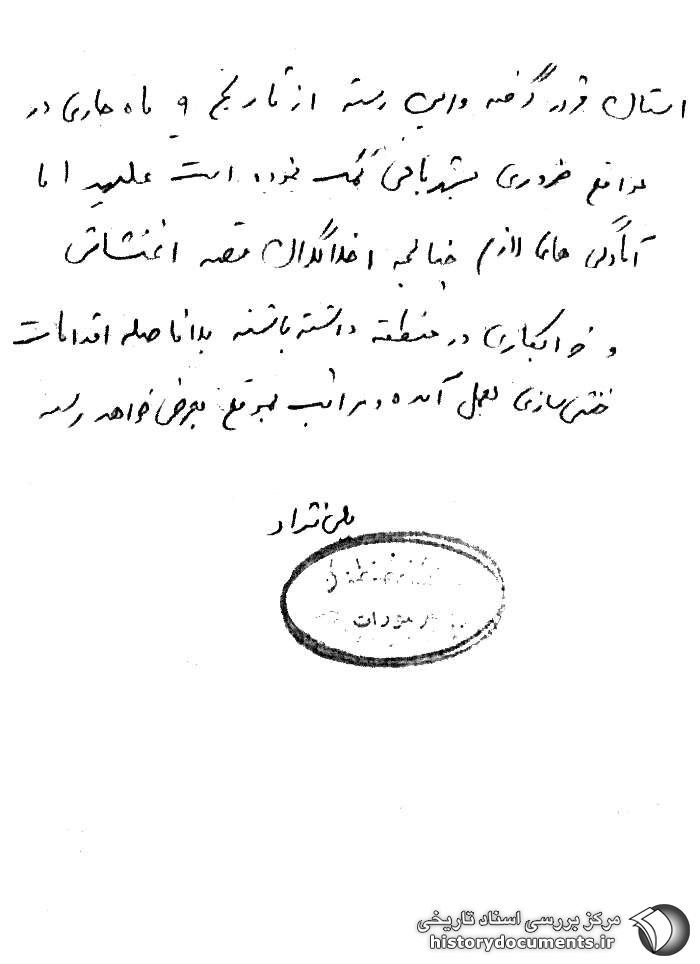 استان قرار گرفته و این رسته از تاریخ ۹ ماه جاری در
مواقع ضروری بشهربانی کمک نموده است علیهذا با
آمادگی های لازم چنانچه اخلالگران قصد اغتشاش
و خرابکاری در منطقه داشته باشند بلافاصله اقدامات
خنثی سازی بعمل آمده و مراتب بموقع بعرض خواهد رسید
مرکز بررسی اسناد تاریخی
historydocuments.ir